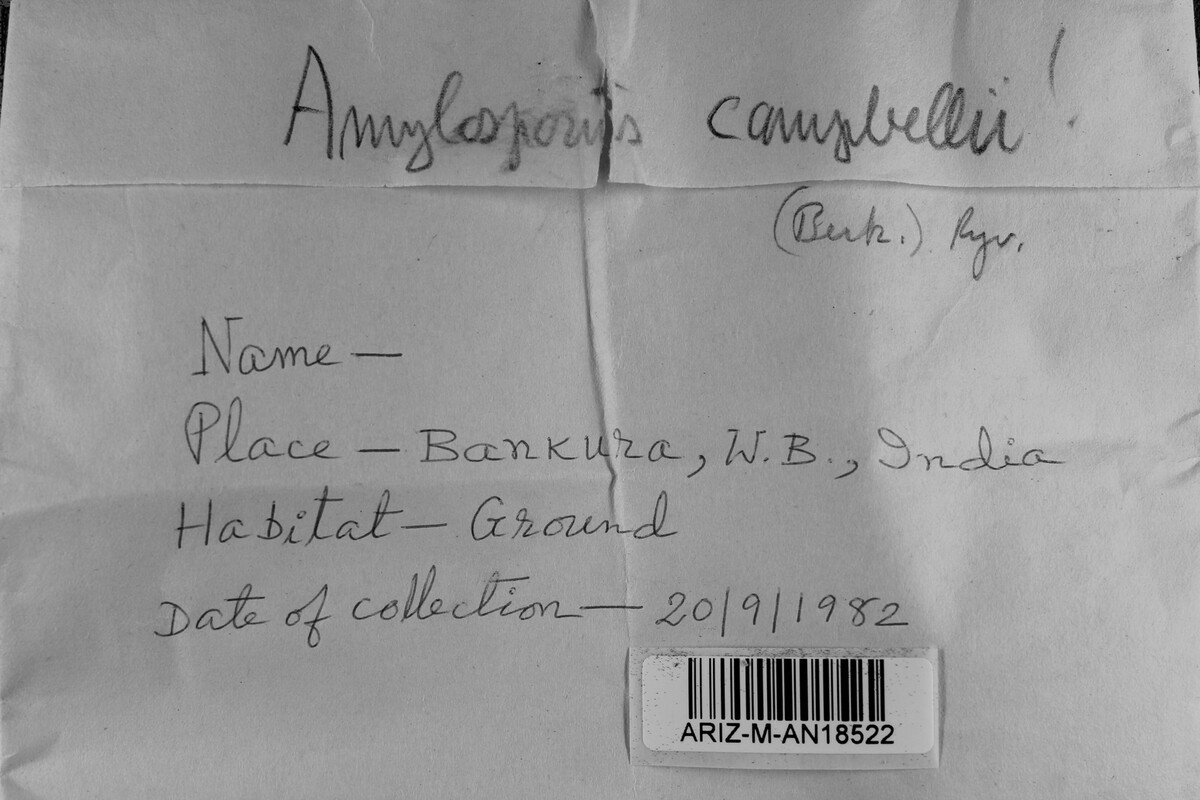 Amylosporus campbellii!
(Berk.) Ryv.
Name —
Place — Bankura, W.B., India
Habitat — Ground
Date of collection — 20/9/1982
ARIZ-M-AN18522